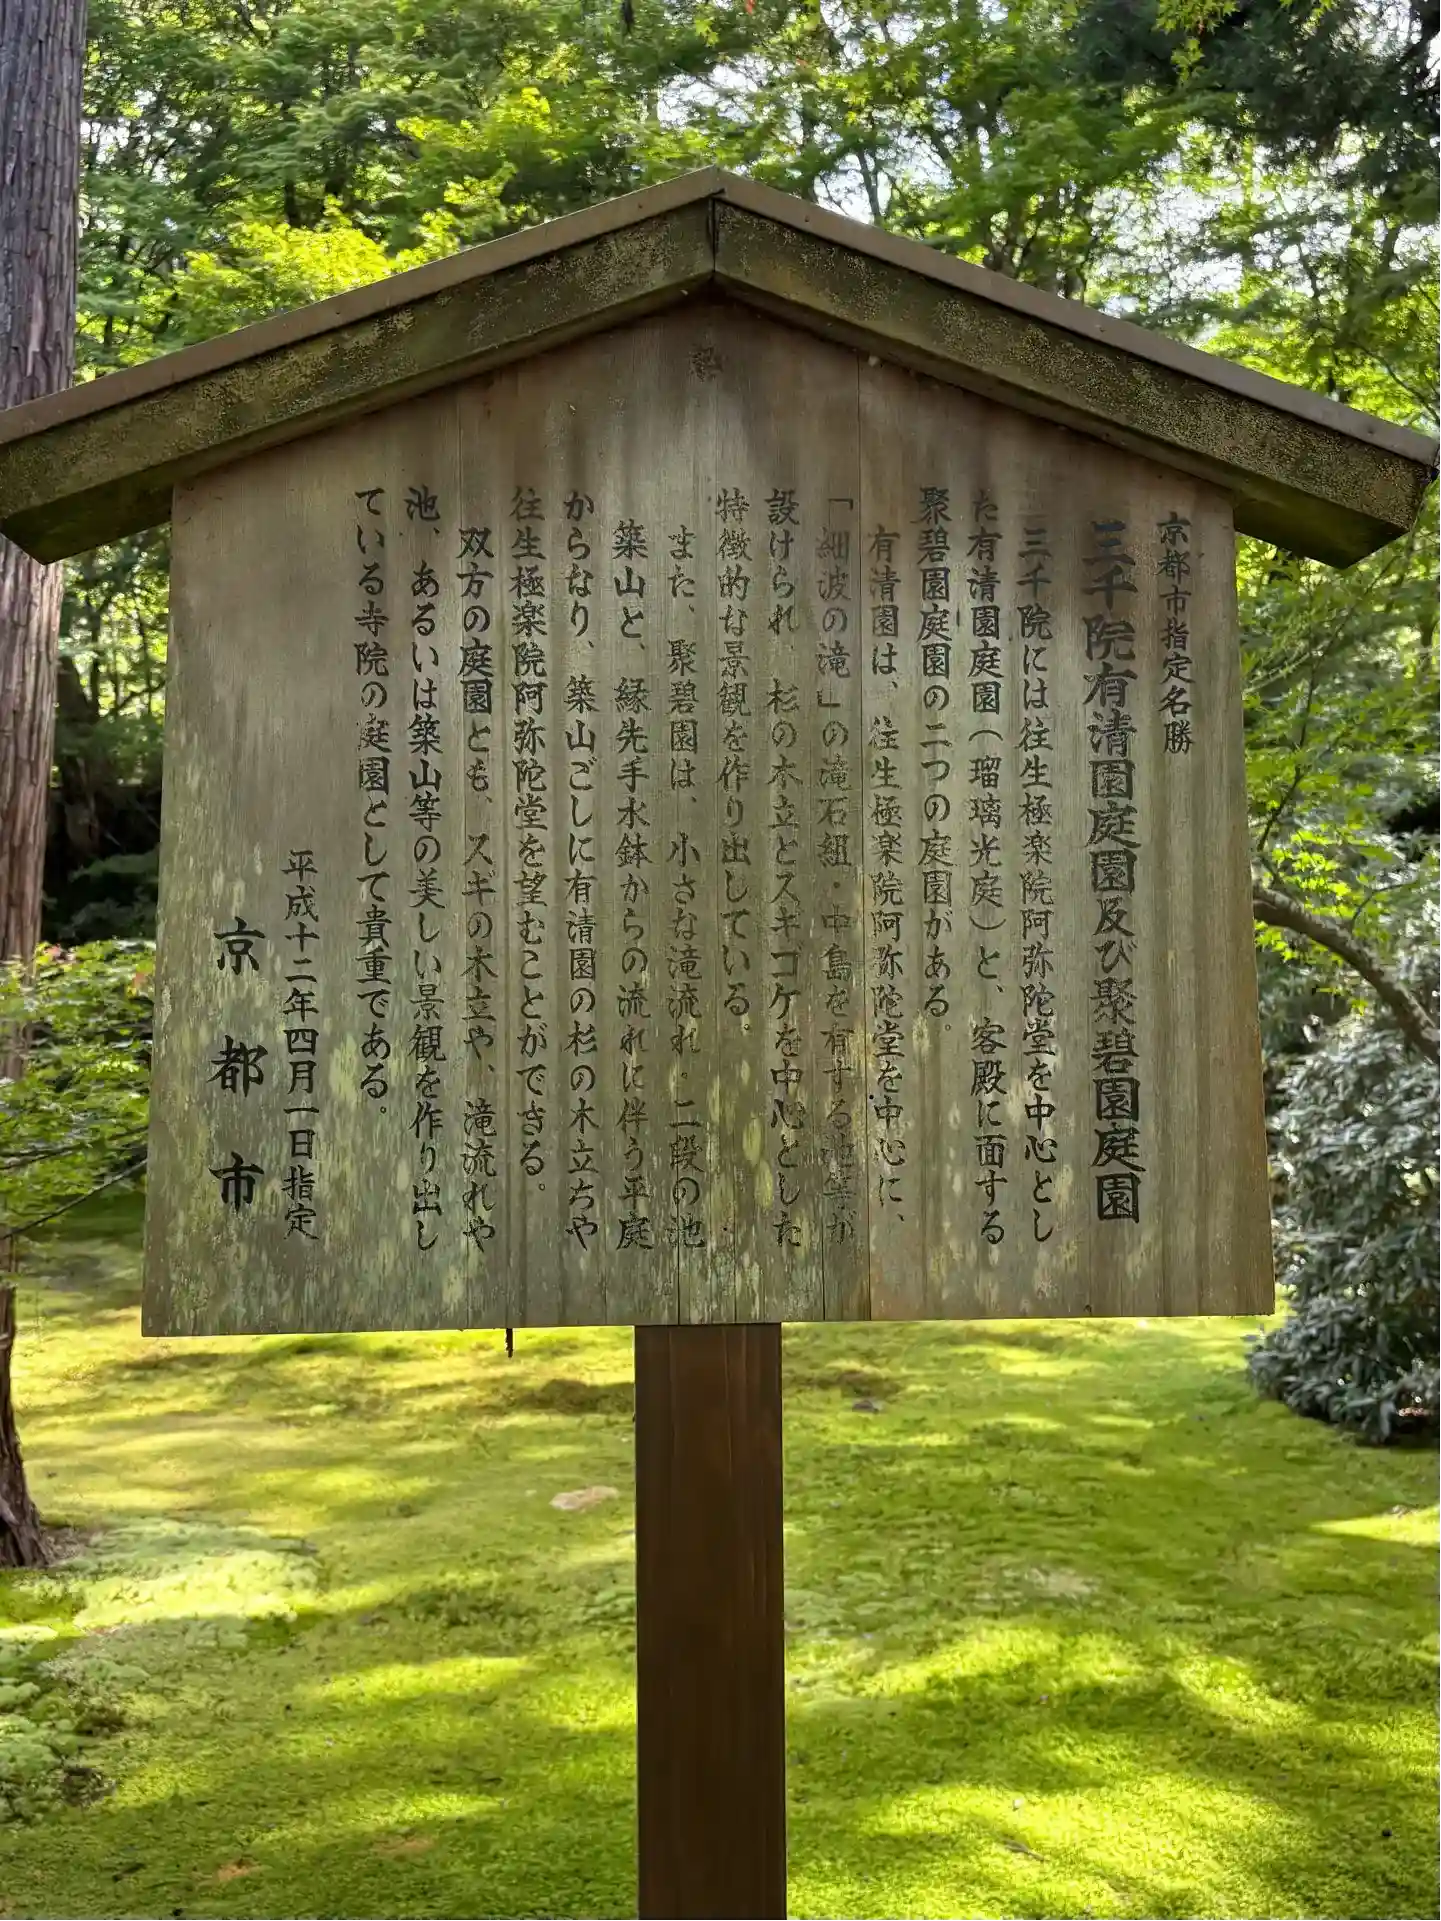 京都市指定名勝
三千院有清園庭園及び聚碧園庭園
三千院には往生極楽院阿弥陀堂を中心とし
た有清園庭園（瑠璃光庭）と、客殿に面する
聚碧園庭園の二つの庭園がある。
有清園は、往生極楽院阿弥陀堂を中心に、
「細波の滝」の滝石組・中島を有する池等が
設けられ、杉の木立とスギゴケを中心とした
特徴的な景観を作り出している。
また、聚碧園は、小さな滝流れ・二段の池
築山と、縁先手水鉢からの流れに伴う平庭
からなり、築山ごしに有清園の杉の木立ちや
往生極楽院阿弥陀堂を望むことができる。
双方の庭園とも、スギの木立や、滝流れや
池、あるいは築山等の美しい景観を作り出し
ている寺院の庭園として貴重である。
平成十二年四月一日指定
京都市